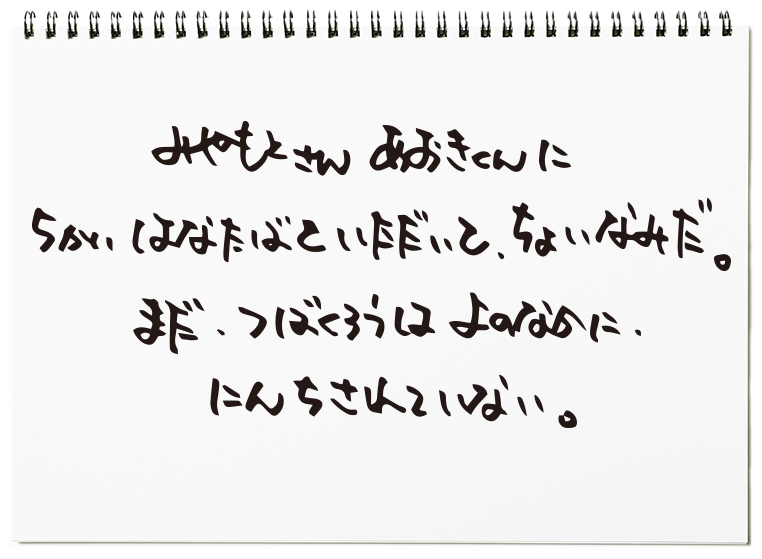 みやもとさん あおきくんに
ちかい はなたばていただいて、ちょいなみだ。
まだ、つばくろうは よのなかに、
にんちされていない。